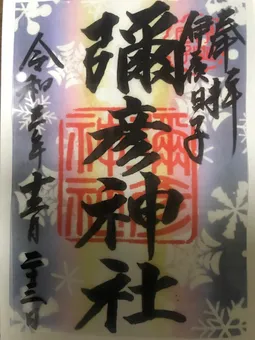 奉拝
伊夜日子
彌彦神社
彌彦神社
令和 年 十二月 二十三日